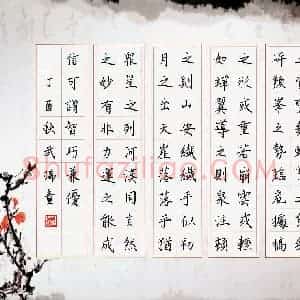 岸頹峰之勢臨危據槁
之形或重若崩雲或輕
如蟬翼導之則泉注頓
之則山安纖纖乎似初
月之出天涯落落乎猶
眾星之列河漢同自然
之妙有非力運之能成
信可謂智巧兼優
丁酉秋武